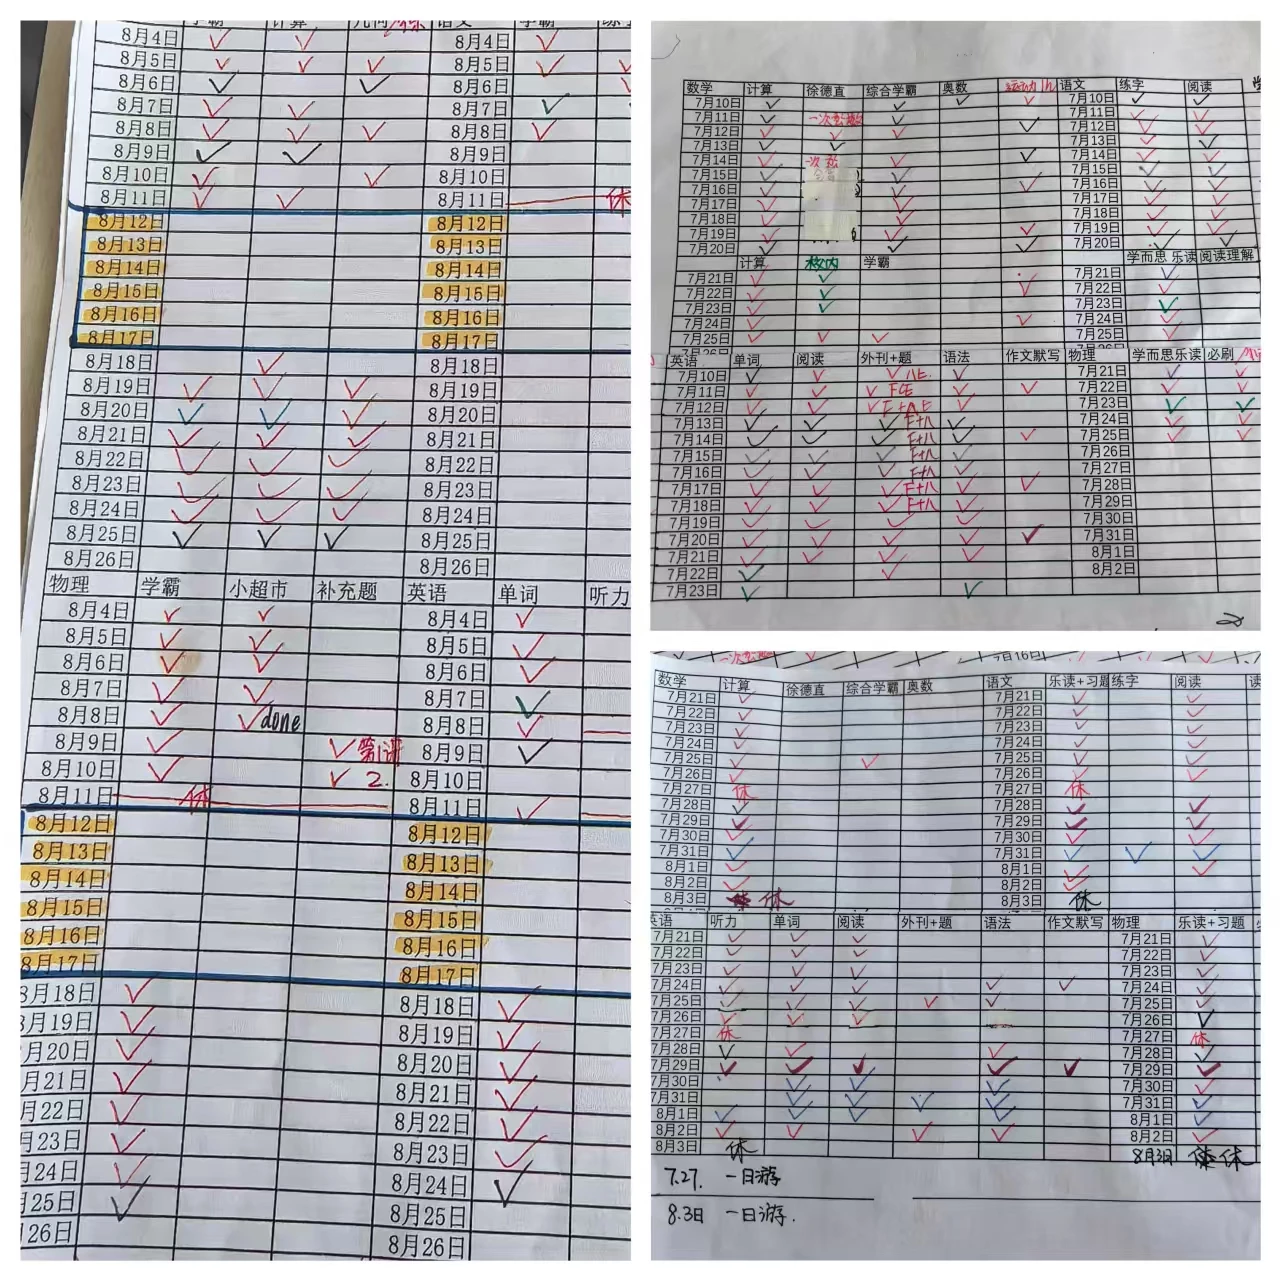 学霸 计算 几何 语文 学霸
8月4日 8月4日
8月5日 8月5日
8月6日 8月6日
8月7日 8月7日
8月8日 8月8日
8月9日 8月9日
8月10日 8月10日
8月11日 8月11日 休
8月12日 8月12日
8月13日 8月13日
8月14日 8月14日
8月15日 8月15日
8月16日 8月16日
8月17日 8月17日
8月18日 8月18日
8月19日 8月19日
8月20日 8月20日
8月21日 8月21日
8月22日 8月22日
8月23日 8月23日
8月24日 8月24日
8月25日 8月25日
8月26日 8月26日
物理 学霸 小超市 补充题 英语 单词 听力
8月4日 8月4日
8月5日 8月5日
8月6日 8月6日
8月7日 8月7日
8月8日 done 8月8日
8月9日 第1讲 8月9日
8月10日 2. 8月10日
8月11日 休 8月11日
8月12日 8月12日
8月13日 8月13日
8月14日 8月14日
8月15日 8月15日
8月16日 8月16日
8月17日 8月17日
8月18日 8月18日
8月19日 8月19日
月20日 8月20日
月21日 8月21日
月22日 8月22日
月23日 8月23日
月24日 8月24日
月25日 8月25日
26日 8月26日
数学 计算 徐德直 综合学霸 奥数 语文 练字 阅读
7月10日 7月10日
7月11日 7月11日
7月12日 7月12日
7月13日 7月13日
7月14日 7月14日
7月15日 7月15日
7月16日 7月16日
7月17日 7月17日
7月18日 7月18日
7月19日 7月19日
7月20日 7月20日
计算 校内 学霸 学而思 乐读 阅读理解
7月21日 7月21日
7月22日 7月22日
7月23日 7月23日
7月24日 7月24日
7月25日 7月25日
英语 单词 阅读 外刊+题 语法 作文默写 物理 学而思乐读 必刷
7月10日 7月21日
7月11日 7月22日
7月12日 7月23日
7月13日 F+八 7月24日
7月14日 F+八 7月25日
7月15日 F+八 7月26日
7月16日 F+八 7月27日
7月17日 F+八 7月28日
7月18日 F+八 7月29日
7月19日 7月30日
7月20日 7月31日
7月21日 8月1日
7月22日 8月2日
7月23日
数学 计算 徐德直 综合学霸 奥数 语文 乐读+习题 练字 阅读
7月21日 7月21日
7月22日 7月22日
7月23日 7月23日
7月24日 7月24日
7月25日 7月25日
7月26日 7月26日
7月27日 休 7月27日 休
7月28日 7月28日
7月29日 7月29日
7月30日 7月30日
7月31日 7月31日
8月1日 8月1日
8月2日 8月2日
8月3日 休 8月3日 休
英语 听力 单词 阅读 外刊+题 语法 作文默写 物理 乐读+习题
7月21日 7月21日
7月22日 7月22日
7月23日 7月23日
7月24日 7月24日
7月25日 7月25日
7月26日 7月26日
7月27日 休 7月27日 休
7月28日 7月28日
7月29日 7月29日
7月30日 7月30日
7月31日 7月31日
8月1日 8月1日
8月2日 8月2日
8月3日 休 8月3日 休
7.27. 一日游
8.3日 一日游.